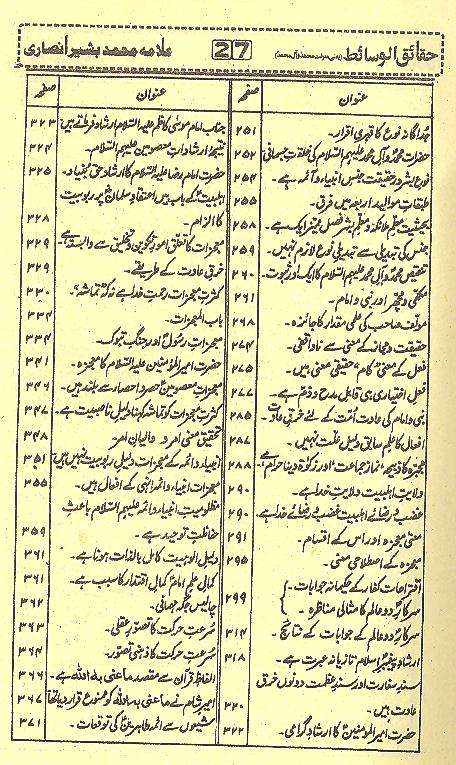 حقائق الوسائط (یعنی معرفت محمدؐ و آل محمدؐ) 27 علامہ محمد بشیر انصاری
عنوان صفحہ
جُداگانہ نوع کا قہری اقرار۔ ۲۵۱
حضرات محمدؐ و آل محمد علیہم السلام کی خلقتِ جسمانی ۲۵۲
نوع بشر در حقیقت جنسِ انبیاء و آئمہ ہے۔ ۲۵۴
طبقات موالید اربعہ میں فرق۔ ۲۵۵
بحیثیت معلم ملائکہ و معلم بشر فصل ممیز ایک ہے۔ ۲۵۸
جنس کی تبدیلی سے تبدیلی نوع لازم نہیں۔ ۲۵۹
تنقیص محمدؐ و آل محمد علیہم السلام کا ایک اور ثبوت۔ ۲۶۰
مکھی و مچھر اور نبی و امام۔ ۲۶۱
مؤلف صاحب کی علمی مقدار کا جائزہ۔ ۲۶۸
حقیقت و مجاز کے معنی سے ناواقفی۔ ۲۷۴
فعل کے معنی "کام" حقیقی معنی ہیں۔ ۲۷۵
فعلِ اختیاری ہی قابل مدح و ذم ہے۔ ۲۷۷
نبی و امام کی عادت اُمت کے لئے خرقِ عادت ۲۸۵
افعال کا علم سابق دلیل علّت نہیں۔ ۲۸۷
معجزہ کا ذبیحہ، نماز جماعت اور زکوٰۃ دینا حرام ہے۔ ۲۸۸
ولایتِ اہلبیت ولایتِ خدا ہے۔ ۲۹۰
غضب و رضائے اہلبیت غضب و رضائے خدا ہے۔ ۲۹۰
معنی معجزہ اور اس کے اقسام۔ ۲۹۱
معجزہ کے اصطلاحی معنی۔ ۲۹۵
اقتراحات کفار کے حکیمانہ جوابات۔
سرکارِ دو عالم کا مثالی مناظرہ۔ ۲۹۹
سرکارِ دو عالم کے جوابات کے نتائج۔ ۳۱۴
ارشادِ پیغمبرِ اسلام تازیانہ عبرت ہے۔ ۳۱۸
سندِ سفارت اور سندِ عظمت دونوں خرق
عادت ہیں۔ ۳۲۰
حضرت امیر المومنینؑ کا ارشادِ گرامی۔ ۳۲۲
عنوان صفحہ
جناب امام موسیٰ کاظم علیہ السلام ارشاد فرماتے ہیں ۳۲۳
نتیجہ ارشاداتِ معصومین علیہم السلام۔ ۳۲۴
حضرت امام رضا علیہ السلام کا ارشاد حق بنیاد۔ ۳۲۵
اہلبیتؑ کے باب میں اعتقادِ سلمانؓ پر ربوبیت
کا الزام۔ ۳۲۸
معجزات کا تعلق امور تکوین و تخلیق سے وابستہ ہے۔ ۳۲۹
خرقِ عادت کے طریقے۔ ۳۲۹
کثرتِ معجزات رحمتِ خدا ہے نہ کہ تماشہ۔ ۳۳۰
باب المعجزات۔ ۳۳۴
معجزاتِ رسولؐ اور جنگِ تبوک۔ ۳۳۴
حضرت امیر المومنین علیہ السلام کا معجزہ۔ ۳۴۱
معجزاتِ معصومینؑ حصر و احصار سے بلند ہیں۔ ۳۴۶
کثرتِ معجزات کو تماشہ کہنا دلیلِ ناصبیت ہے۔ ۳۴۷
تحقیق معنی امر و والیانِ امر ۳۴۸
انبیاء و ائمہ کے معجزات دلیلِ ربوبیت نہیں ہیں ۳۵۱
معجزات انبیاء و ائمہ انہی کے افعال ہیں۔ ۳۵۵
مظلومیتِ انبیاء و ائمہ علیہم السلام باعثِ
حفاظتِ توحید ہے۔ ۳۵۹
دلیل الوہیت کامل بالذات ہونا ہے۔ ۳۶۱
کمالِ علمِ امامؑ کمالِ اقتدار کا سبب ہے۔ ۳۶۱
چالیس جگہ مہمانی۔ ۳۶۲
سُرعتِ حرکت کا تصورِ عقلی۔ ۳۶۳
سُرعتِ حرکت کا ذہنی تصور۔ ۳۶۴
الفاظِ قرآن سے مقصد ما عنی بہ اللہ ہے۔ ۳۶۶
امیر شام نے ما عنی بہ اللہ کو ممنوع قرار دیا تھا ۳۶۷
شیعوں سے ائمہ طاہرینؑ کی توقعات۔ ۳۷۱